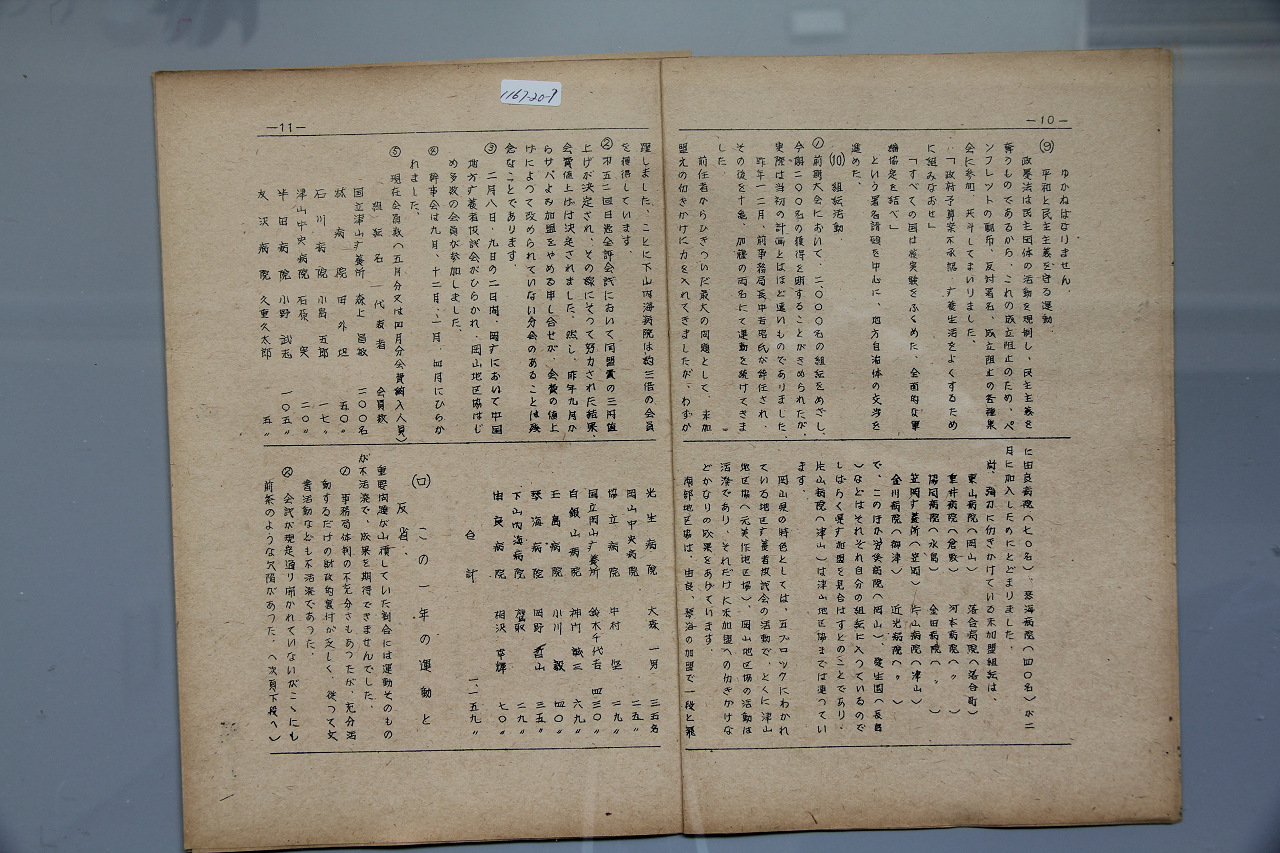 1167-20-9
—10—
ゆかねばなりません。
(9) 平和と民主主義を守る運動
政暴法は民主団体の活動を規制し、民主主義を
奪うものであるから、これの成立阻止のため、パ
ンフレットの配布、反対署名、成立阻止の各種集
会に参加、共斗してまいりました。
「政府予算案不承認 療養生活をよくするため
に組みなおせ」
「すべての国は核実験をふくめた、全面的な軍
縮協定を結べ」
という署名請願を中心に、地方自治体の交渉を
進めた。
(10) 組転活動
① 前期大会において、二、〇〇〇名の組転をめざし、
今期二〇〇名の獲得を期することがきめられたが、
実際は当初の計画とはほど遠いものでありました。
昨年一二月、前事務局長中吉
その後を十亀、加藤の両名にて運動を続けてきま
した。
前任者からひきついだ最大の問題として、未加
盟えの仂きかけに力を入れてきましたが、わずか
に由良病院(七〇名)、琴海病院(四〇名)が二
月に加入したのにとどまりました。
尚、強力に仂きかけている未加盟組転は、
東山病院(岡山) 落合病院(落合町)
重井病院(倉敷) 河本病院(〃)
協同病院(水島) 金田病院(〃)
笠岡療養所(笠岡) 片山病院(津山)
金川病院(御津) 近光病院(〃)
で、このほか労災病院(岡山)、愛生園(長島
)などはそれぞれ自分の組転に入っているので
しばらく導す加盟を見合はすとのことであり、
片山病院(津山)は津山地区協までは
ます。
岡山県の特色としては、五ブロックにわかれ
ている地区療養者協議会の活動で、とくに津山
地区協(元美作地区協)、岡山地区協の活動は
活溌であり、それだけに未加盟への仂きかけな
どかなりの成果をあげています。
南部地区協は、由良、琴海の加盟で一段と飛
—11—
躍しました。ことに下山内海病院は約三倍の会員
を獲得しています。
② 第五二回日患会評会議において同盟費の三円値
上げが決定され、その線にそって努力された結果、
会費値上げは決定されました。然し、昨年九月か
らサバよみ加盟をやめる申し合せが、会費の値上
げによって改められていない分会のあることは残
念なことであります。
③ 二月八日、九日の二日間、岡療において中国
地方療養者協議会がひらかれ、岡山地区協はじ
め多数の会員が参加しました。
④ 幹事会は九月、十二月、二月、四月にひらか
れました。
⑤ 現在会員数(五月分又は四月分会費納入人員)
組転名 代表者 会員数
国立津山療養所 森上昌敏 二〇〇名
林病院 田外 五〇〃
石川病院 小畠五郎 一七〃
津山中央病院 石原実 二〇〃
半田病院 小野武志 一〇五〃
友沢病院 久重久太郎 五〃
光生病院 大森一男 三五名
岡山中央病院 二五〃
協立病院 中村 一九〃
国立岡山療養所 鈴木千代吉 四三〇〃
白銀山病院 神門誠三 六九〃
玉島病院 小川毅 四〇〃
琴海病院 岡野 三五〃
下山内海病院 鷲取 二九〃
由良病院 相沢 七〇〃
合計 一、一五九〃
(ロ) この一年の運動と
反省、
重要問題が山積していた割合には運動そのもの
が不活溌で、成果を期待できませんでした。
① 事務局体制の不充分さもあったが、充分活
動するだけの財政的裏付が乏しく、従って文
書活動なども不活溌であった。
② 会議が規定通り開かれていないがこゝにも
前条のような欠陥があった。(次頁下段へ)